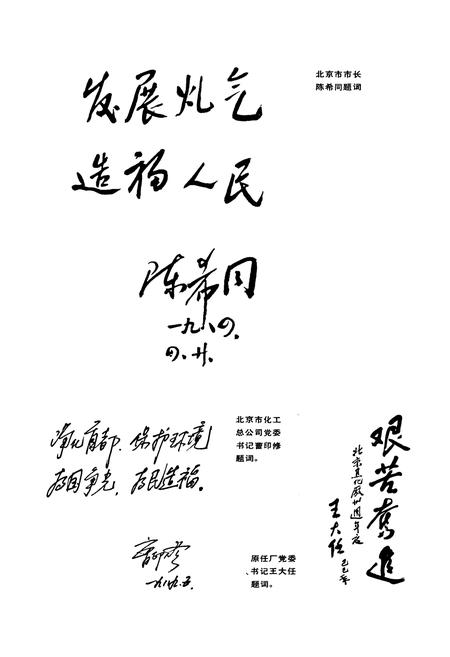 发展煤气
造福人民
陈希同
一九八四.
四.廿.
北京市市长
陈希同题词
净化首都.保护环境
为国争光,为民造福。
曹印修
一九八九.五.
北京市化工
总公司党委
书记曹印修
题词。
艰苦奋进
王大任
己巳年
原任厂党委
书记王大任
题词。